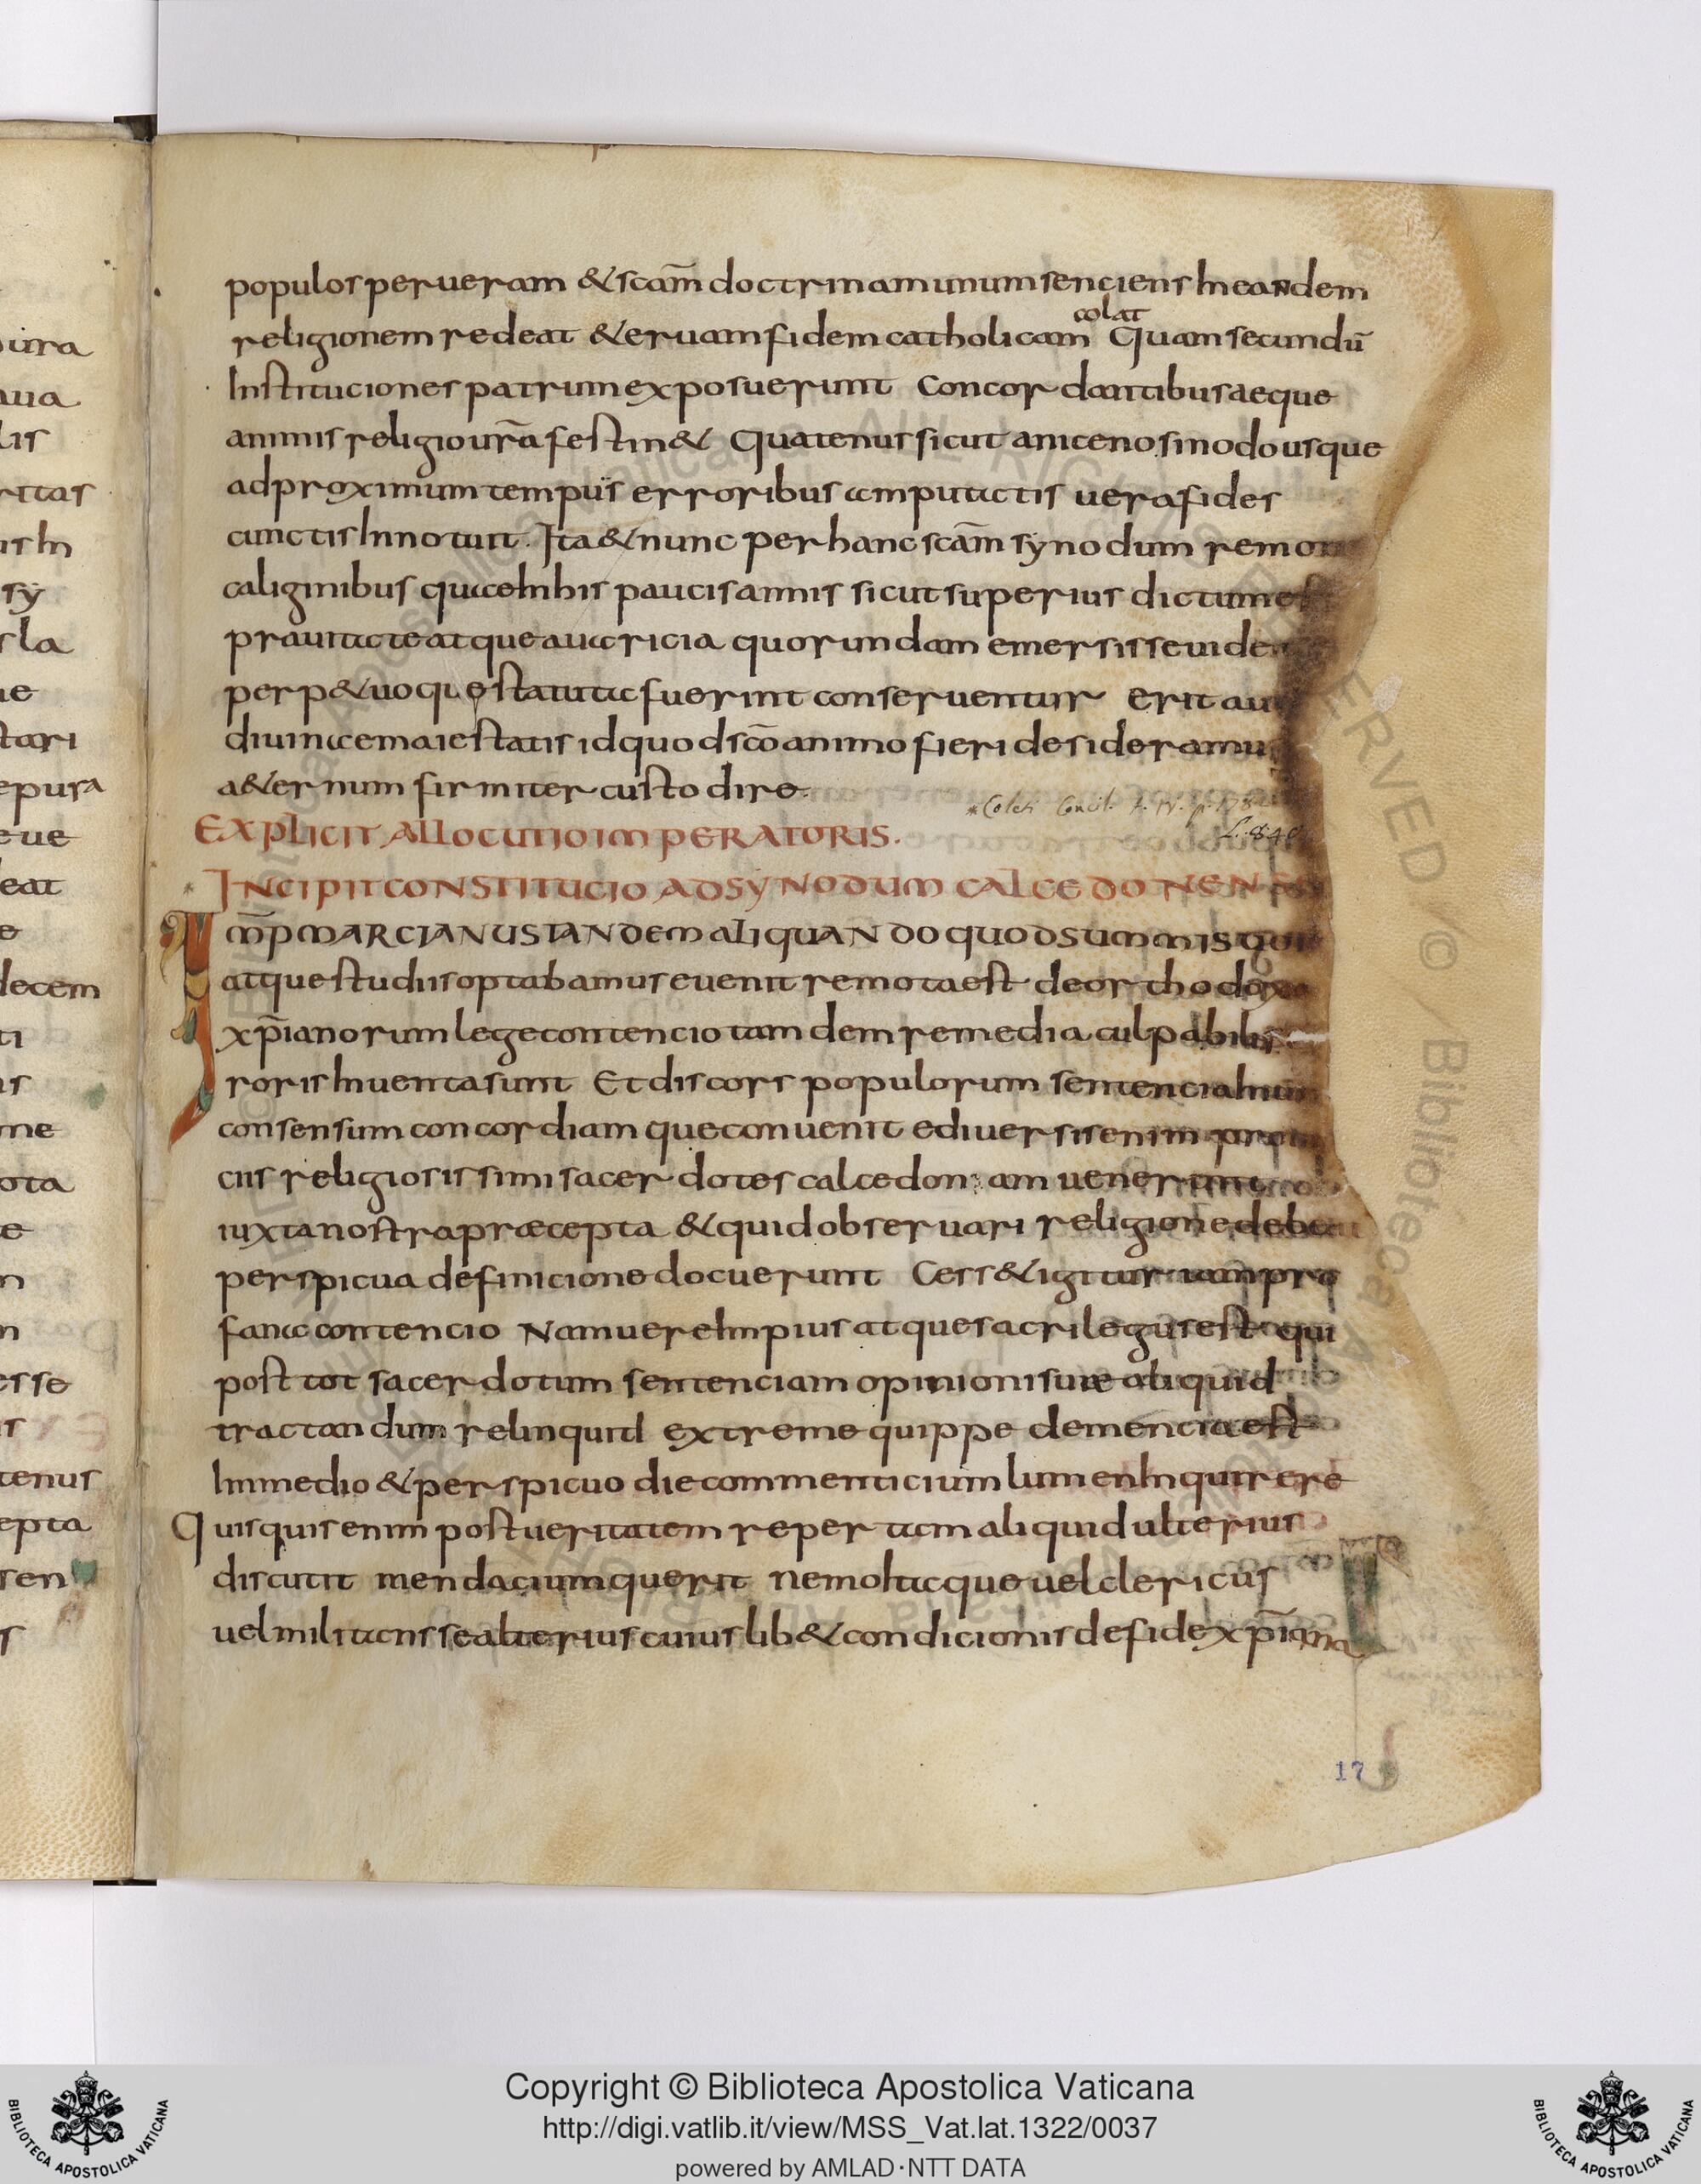 populos per ueram & scam̄ doctrinam unum senciens In eandem
colat
religionem redeat & eruam fidem catholicam Quam secundū
Instituciones patrum exposuerunt Concordantibus aeque
animis religio ur̄a festin& Quatenus sicut aniceno sinodo usque
ad proximum tempus erroribus amputatis uera fides
cunctis Innotuit. Ita & nunc per hanc scam̄ synodum remotis
caliginibus quae In his paucis annis sicut superius dictum est
prauitate atque auaricia quorundam emersisse
perp&uo que statuta fuerint conseruentur Erit
diuinae maiestatis id quod sc̄o animo fieri desideramus
a&ernum firmiter custodire.
*Coleti Concil. t. IV. p.
EXPLICIT ALLOCUTIO IMPERATORIS.
* INCIPIT CONSTITUCIO AD SYNODUM CALCEDONEN
Im̄p MARCIANUS TANDEM ALIQUANDO QUOD SUMMIS
atque studiis optabamus euenit remota est de orthodoxa
xp̄ianorum lege contencio tamdem remedia culpabilis
roris Inuenta sunt Et discors populorum sentencia In
consensum concordiamque conuenit ediuersis enim
ciis religiosissimi sacerdotes calcedon am uenerunt
iuxta nostra praecepta & quid obseruari religione
perspicua definicione docuerunt Cess& igitur iam pro
fana contencio Nam uere Impius atque sacrilegus est qui
post tot sacerdotum sentenciam opinioni suae aliquid
tractandum relinquid extreme quippe demencia est
In medio & perspicuo die commenticium lumen Inquirere
Quisquis enim post ueritatem repertam aliquid ulterius
discutit mendacium querit nemo Itaque uel clericus
uel militans se alterius cuiuslib& condicionis de fide xp̄iana
17
Copyright © Biblioteca Apostolica Vaticana
http://digi.vatlib.it/view/MSS_Vat.lat.1322/0037
powered by AMLAD·NTT DATA
BIBLIOTECA APOSTOLICA VATICANA
BIBLIOTECA APOSTOLICA VATICANA